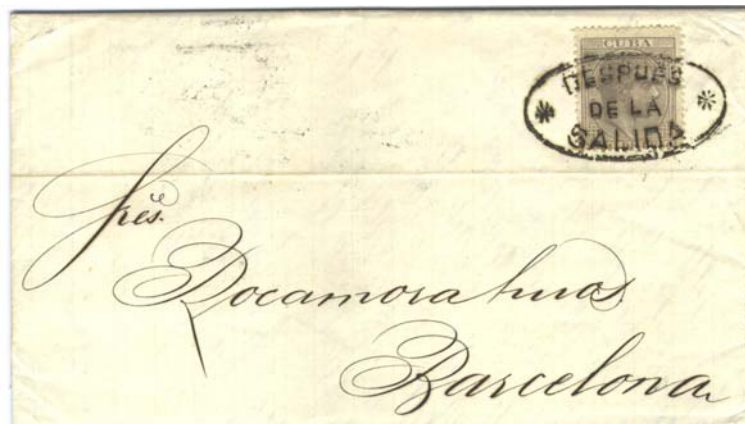 CUBA
DESPUES
DE LA
SALIDA
Sres.
Rocamora hnos
Barcelona